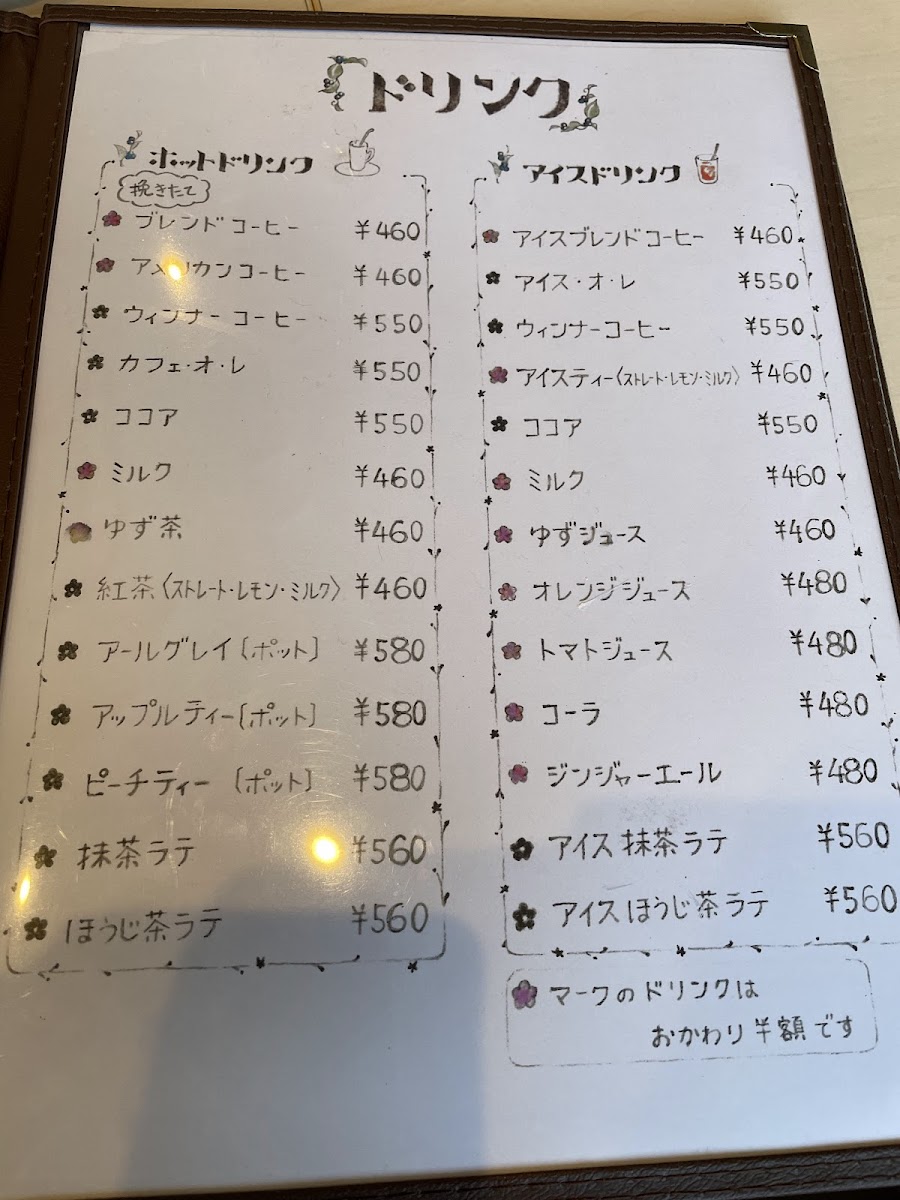 ドリンク
ホットドリンク
挽きたて
ブレンドコーヒー ¥460
アメリカンコーヒー ¥460
ウィンナーコーヒー ¥550
カフェ・オ・レ ¥550
ココア ¥550
ミルク ¥460
ゆず茶 ¥460
紅茶〈ストレート・レモン・ミルク〉 ¥460
アールグレイ〔ポット〕 ¥580
アップルティー〔ポット〕 ¥580
ピーチティー〔ポット〕 ¥580
抹茶ラテ ¥560
ほうじ茶ラテ ¥560
アイスドリンク
アイスブレンドコーヒー ¥460
アイス・オ・レ ¥550
ウィンナーコーヒー ¥550
アイスティー〈ストレート・レモン・ミルク〉 ¥460
ココア ¥550
ミルク ¥460
ゆずジュース ¥460
オレンジジュース ¥480
トマトジュース ¥480
コーラ ¥480
ジンジャーエール ¥480
アイス抹茶ラテ ¥560
アイスほうじ茶ラテ ¥560
マークのドリンクは
おかわり半額です